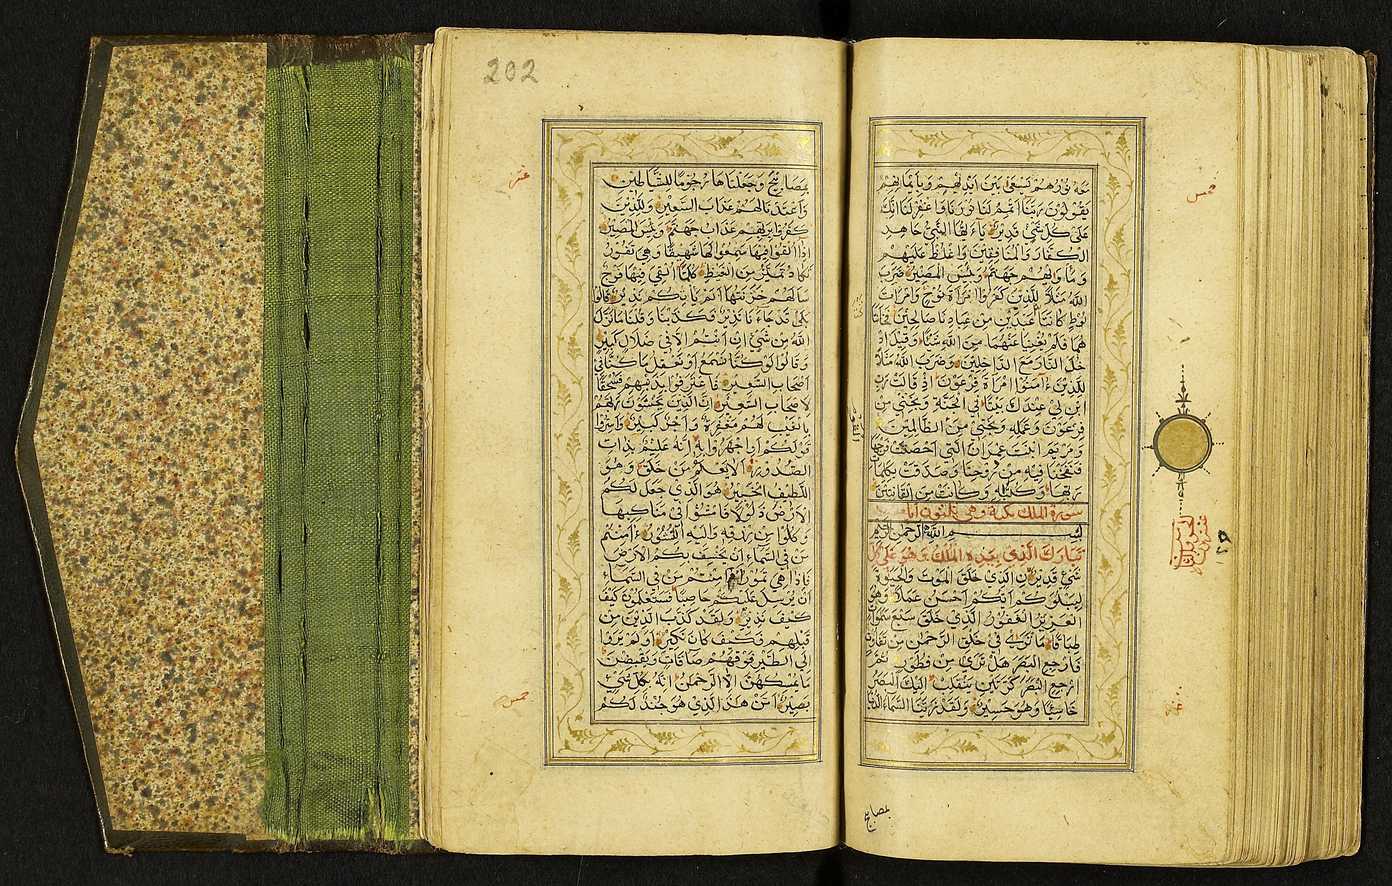 202
عشر
خمس
خمس
عشر
معه نورهم يسعى بين ايديهم وبايمانهم
يقولون ربنا اتمم لنا نورنا واغفر لنا انك
على كل شيء قدير ياءيها النبي جاهد
الكفار والمنافقين واغلظ عليهم
وماويهم جهنم وبئس المصير ضرب
الله مثلا للذين كفروا امراة نوح وامرات
لوط كانتا عبدين من عبادنا صالحين فخانتا
هما فلم يغنيا عنهما من الله شيئا وقيل اد
خلا النار مع الداخلين وضرب الله مثلا
للذين ءامنوا امراة فرعون اذ قالت رب
ابن لي عندك بيتا في الجنة ونجني من
فرعون وعمله ونجني من الظالمين
القوم
ومريم ابنت عمران التي احصنت فرجها
فنفخنا فيه من روحنا وصدقت بكلمات
ربها وكتبه وكانت من القانتين
سورة الملك مكية وهي ثلثون اية
بسم الله الرحمن الرحيم
تبارك الذي بيده الملك وهو على كل
شيء قدير ن الذي خلق الموت والحيوة
ليبلوكم ايكم احسن عملا وهو
العزيز الغفور الذي خلق سبع سموات
طباقا ما ترى في خلق الرحمن من تفاوت
فارجع البصر هل ترى من فطور ثم
ارجع البصر كرتين ينقلب اليك البصر
خاسئا وهو حسير ولقد زينا السماء الدنيا
بمصابيح
بمصابيح وجعلناها رجوما للشياطين
واعتدنا لهم عذاب السعير وللذين
كفروا بربهم عذاب جهنم وبئس المصير
اذا القوا فيها سمعوا لها شهيقا وهي تفور
تكاد تميز من الغيظ كلما القي فيها فوج
سالهم خزنتها الم ياتكم نذير قالوا
بلى قد جاءنا نذير فكذبنا وقلنا ما نزل
الله من شيء ان انتم الا في ضلال كبير
وقالوا لو كنا نسمع او نعقل ما كنا في
اصحاب السعير فاعترفوا بذنبهم فسحقا
لاصحاب السعير ان الذين يخشون ربهم
بالغيب لهم مغفرة واجر كبير واسروا
قولكم او اجهروا به انه عليم بذات
الصدور الا يعلم من خلق وهو
اللطيف الخبير هو الذي جعل لكم
الارض ذلولا فامشوا في مناكبها
وكلوا من رزقه واليه النشور ءامنتم
من في السماء ان يخسف بكم الارض
فاذا هي تمور ام امنتم من في السماء
ان يرسل عليكم حاصبا فستعلمون كيف
كيف نذير ولقد كذب الذين من
قبلهم فكيف كان نكير اولم يروا
الى الطير فوقهم صافات ويقبضن
ما يمسكهن الا الرحمن انه بكل شيء
بصير امن هذا الذي هو جند لكم